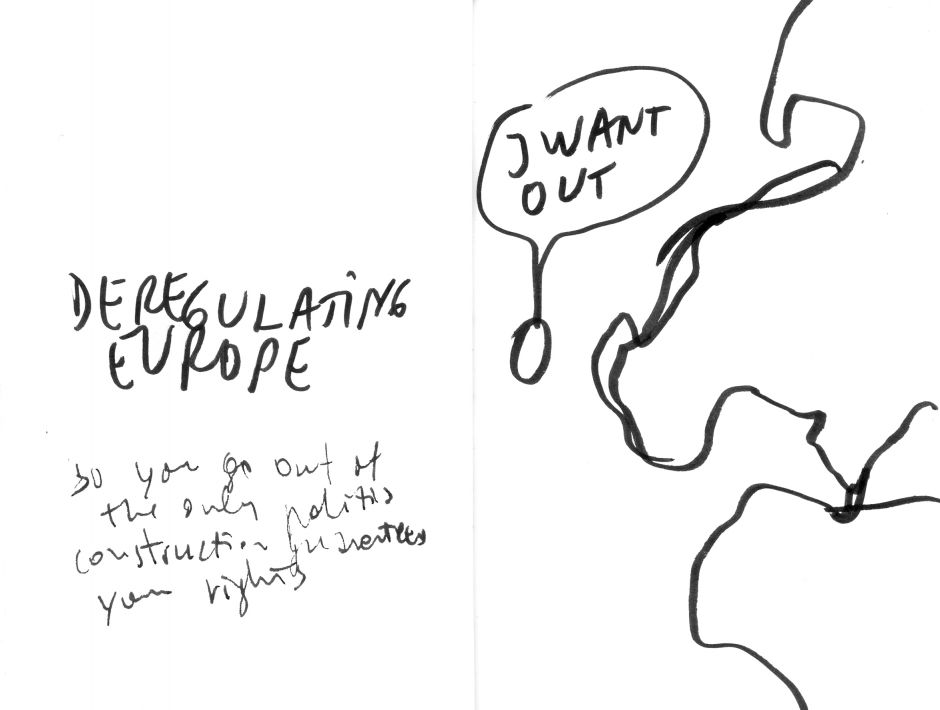 DEREGULATING
EUROPE
so you go out of
the only politis
construction guarantees
your rights
I WANT
OUT